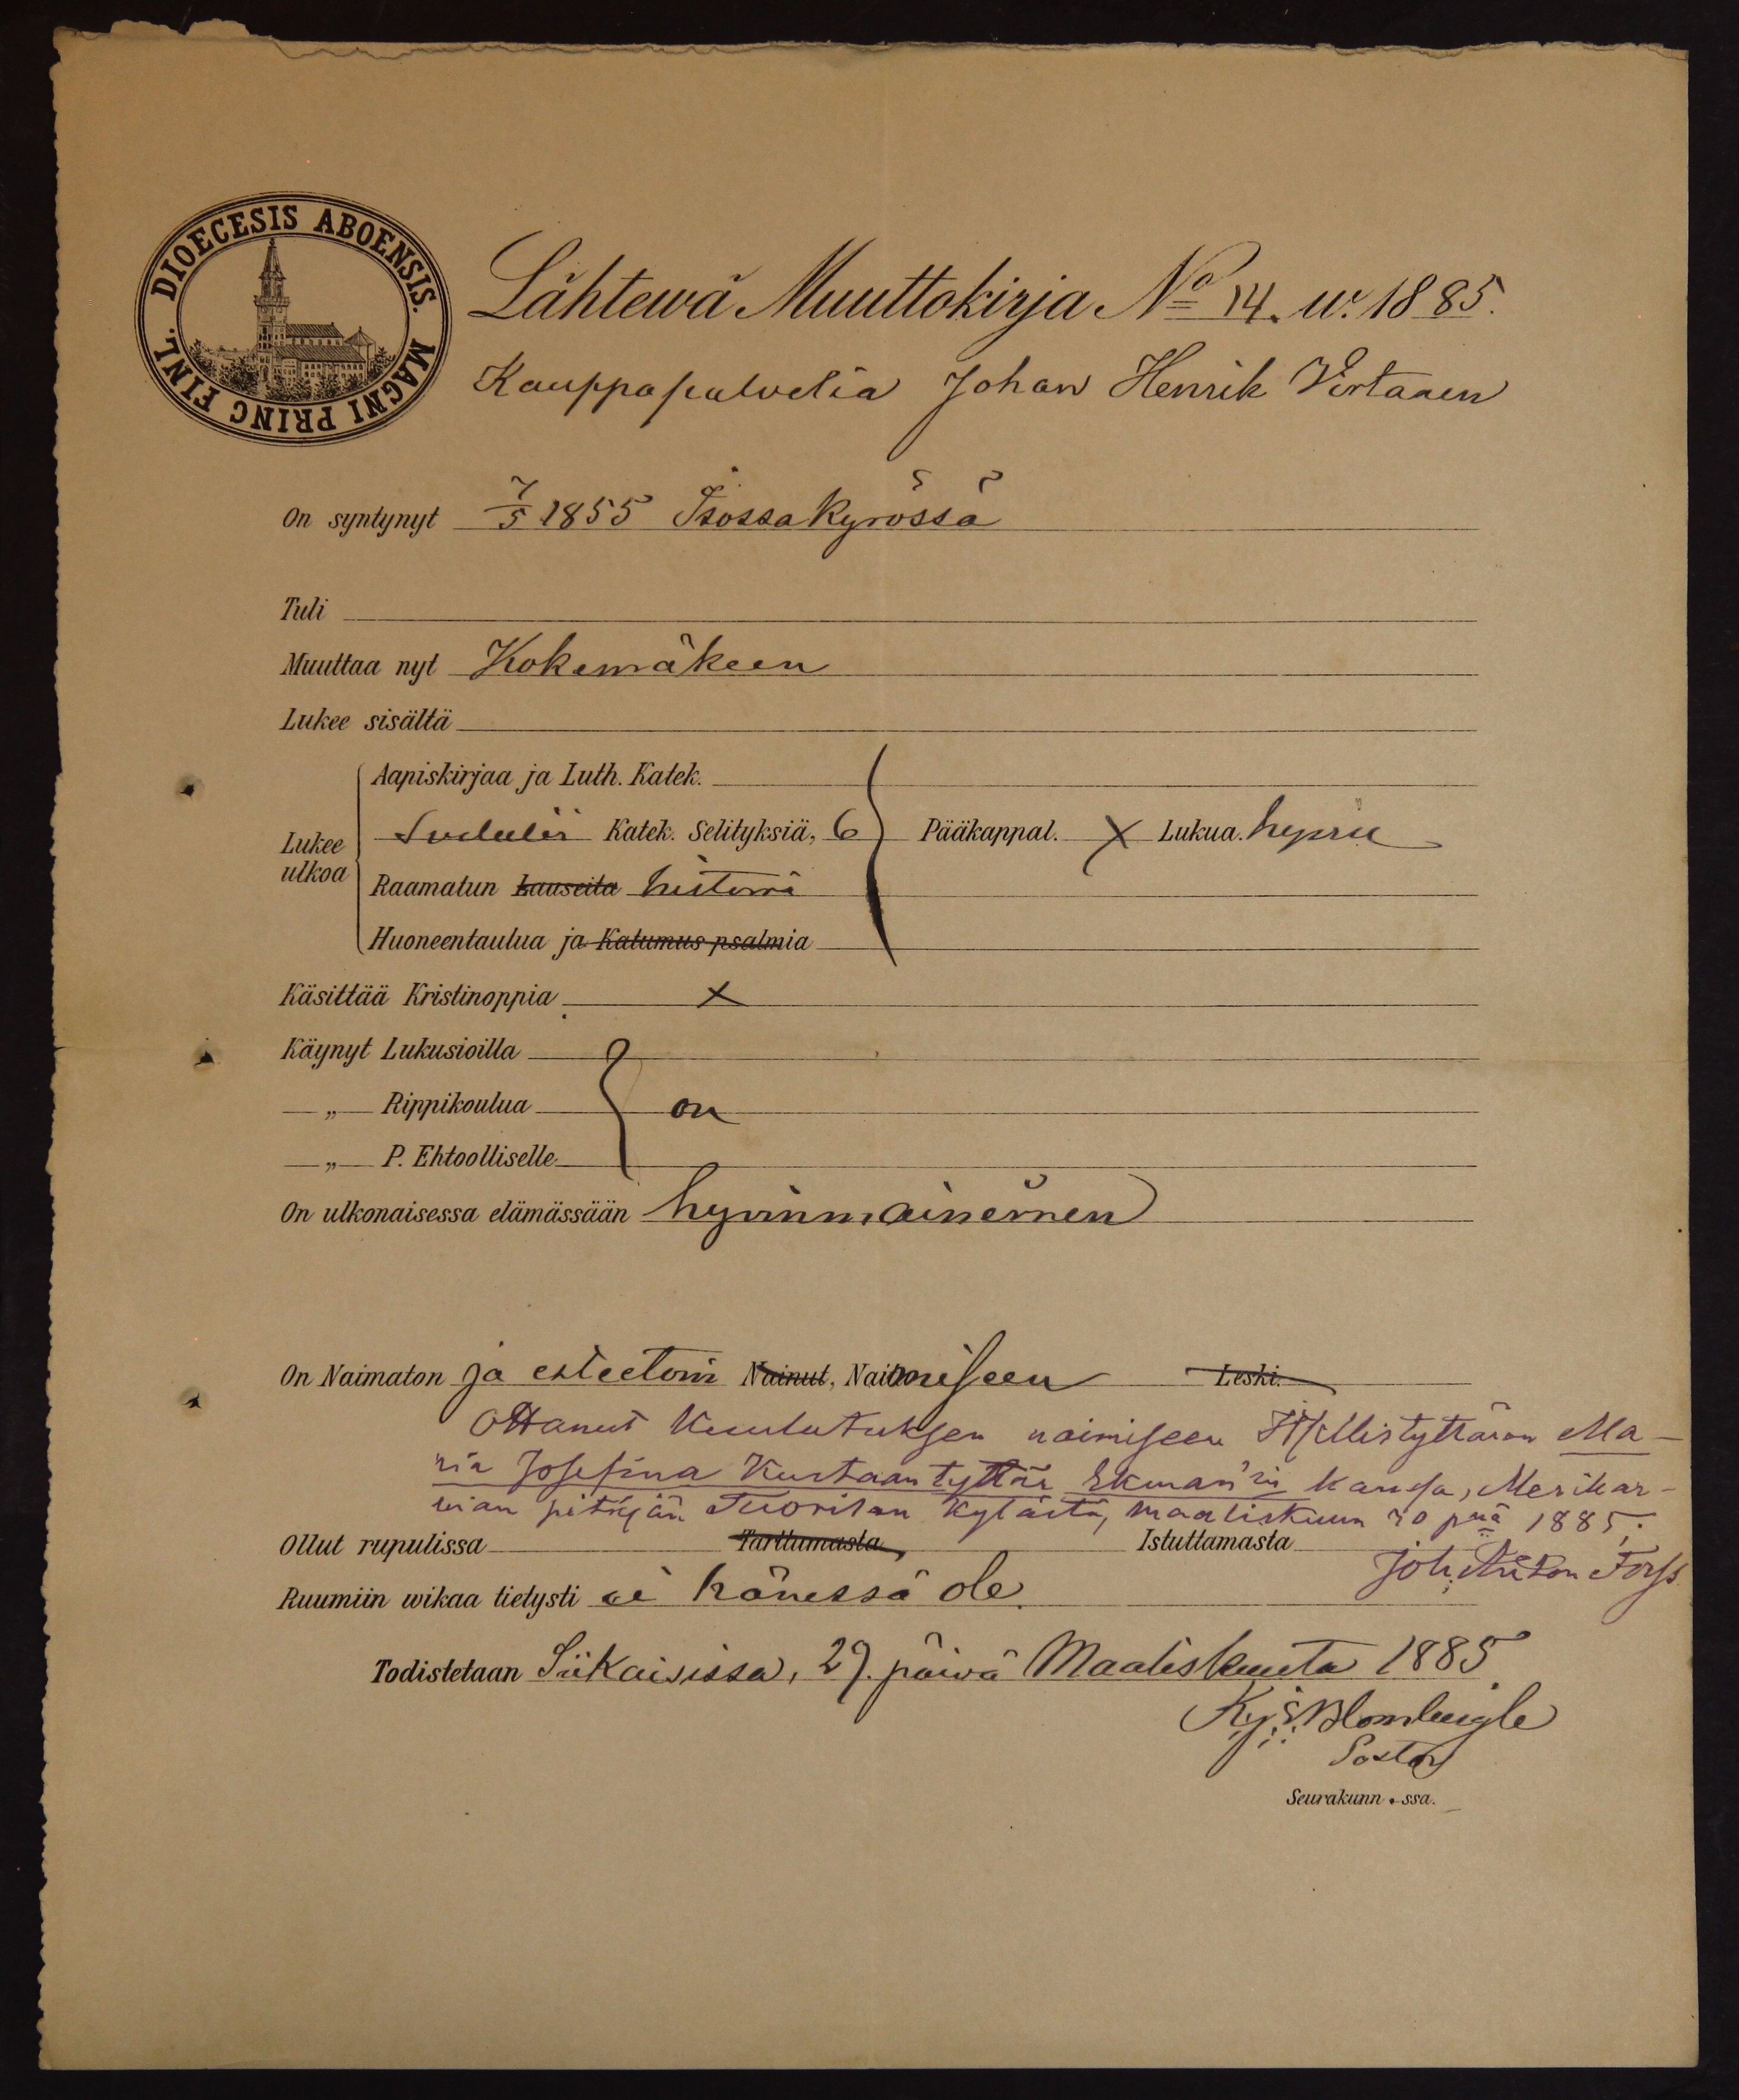 DIOECESIS ABOENSIS. MAGNI PRINC FINL.
Lähtewä Muuttokirja No 14. w. 1885.
Kauppapalvelia Johan Henrik Virtanen
On syntynyt 7/5 1855 Isossa Kyrössä
Tuli
Muuttaa nyt Kokemäkeen
Lukee sisältä
Aapiskirjaa ja Luth. Katek.
Lukee ulkoa
Katek. Selityksiä, 6 Pääkappal. X Lukua.
Raamatun Lauseita historia
Huoneentaulua ja Katumus psalmia
Käsittää Kristinoppia X
Käynyt Lukusioilla
—„— Rippikoulua on
—„— P. Ehtoolliselle
On ulkonaisessa elämässään hyvinmaineinen
On Naimaton ja esteetöin Nainut, Naimiseen Leski.
Ottanut Kuulutuksen naimiseen Ma-
ria Josefina Kustaantyttär Ekman'in kanssa, Merikar-
vian pitäjän Tuorilan kylästä, Maaliskuun 30 pnä 1885.
Joh. Anton Forss
Ollut rupulissa Tarttumasta Istuttamasta
Ruumiin wikaa tietysti ei hänessä ole.
Todistetaan Siikaisissa, 27. päivä Maaliskuuta 1885
Pastor
Seurakunn . ssa.